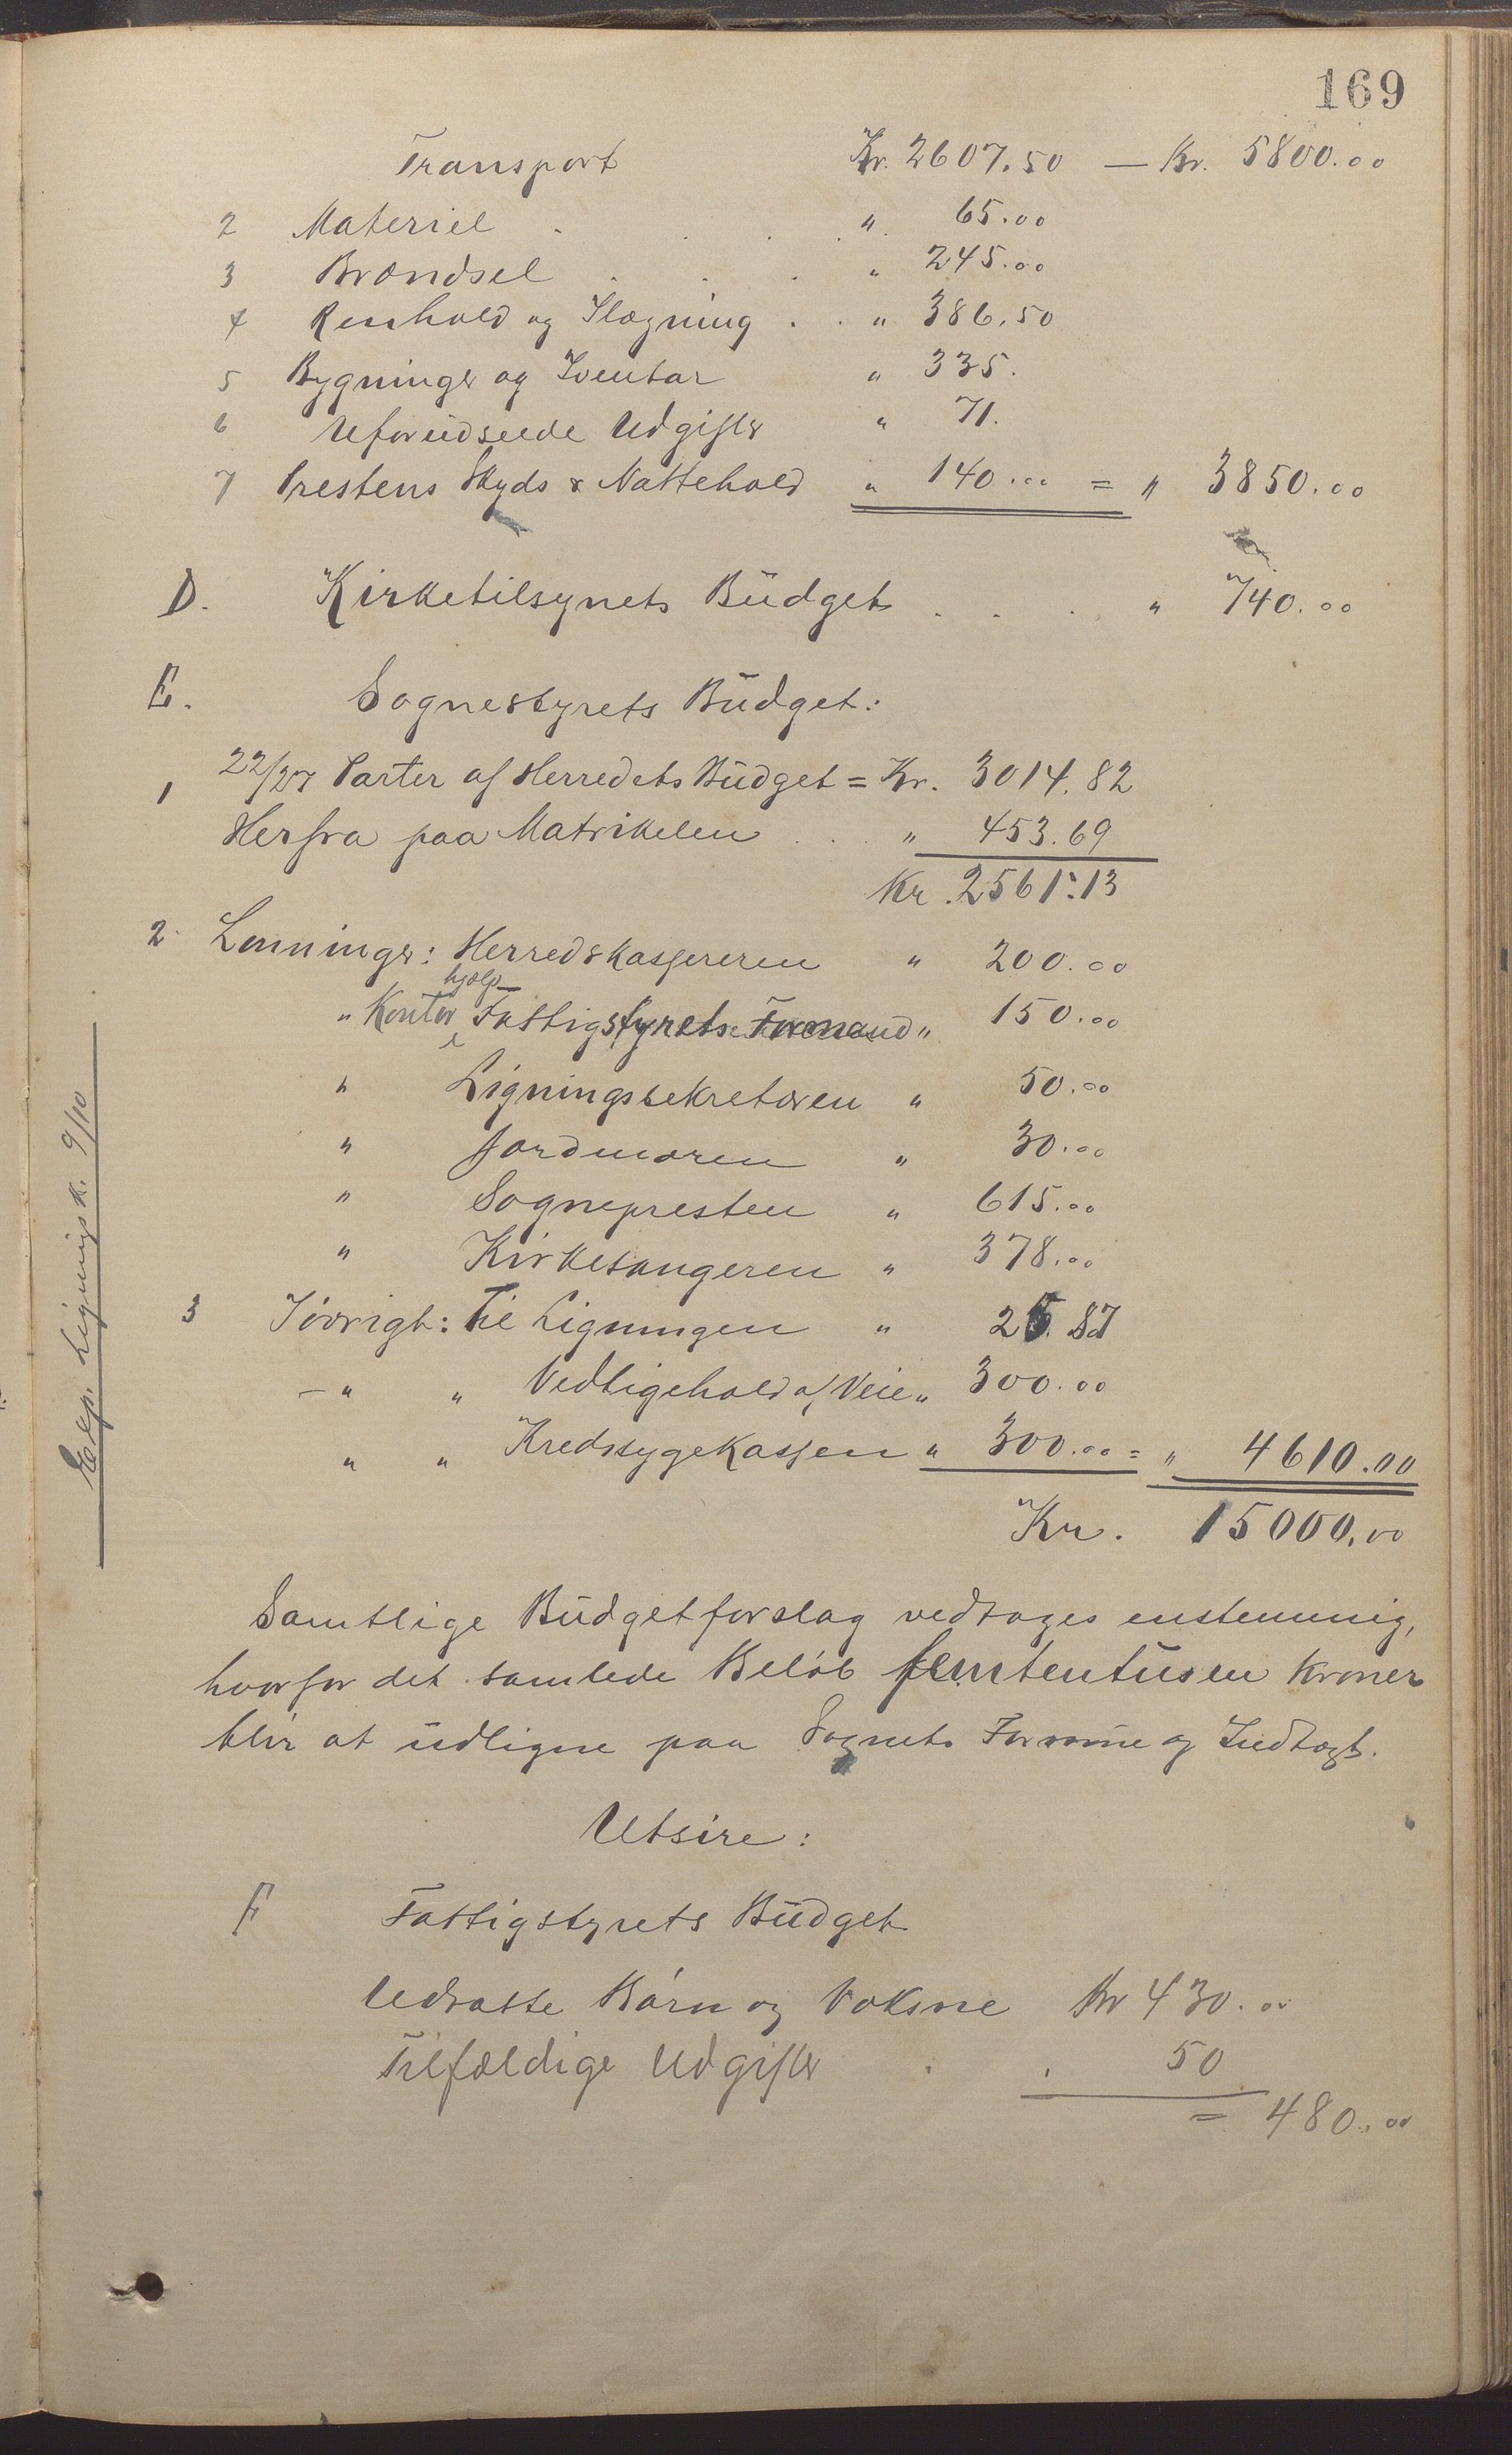 169
Transport Kr. 2607.50 — Kr. 5800.00
2 Materiel . . . . " 65.00
3 Brændsel . . . " 245.00
4 Renhold og Ilægning . . " 386.50
5 Bygninger og Iventar " 335.
6 Uforudseede Udgifter " 71.
7 Prestens Skyds & Nattehold " 140.00 = " 3850.00
D. Kirketilsynets Budget . . . " 740.00
E. Sognestyrets Budget:
1 22/27 Parter af Herredets Budget = Kr. 3014.82
Herfra paa Matrikelen . . . " 453.69
Kr. 2561.13
2 Lønninger: Herredskassereren " 200.00
hjælp
" Kontor Fattigstyrets Formand " 150.00
" Ligningssekretæren " 50.00
" Jordmoren " 30.00
" Sognepresten " 615.00
" Kirkesangeren " 378.00
3 Iøvrigt: Til Ligningen " 25.87
— " " Vedligehold af Veie " 300.00
" " Kredssygekassen " 300.00 = " 4610.00
Kr. 15000.00
Samtlige Budgetforslag vedtoges enstemmig,
hvorfor det samlede Beløb femtentusen Kroner
blir at udligne paa Sognets Formue og Indtægt.
Utsire:
F Fattigstyrets Budget
Udsatte Børn og Voksne Kr 430.00
Tilfældige Udgifter . . 50
= 480.00
Exp. Ligningsk. 9/10